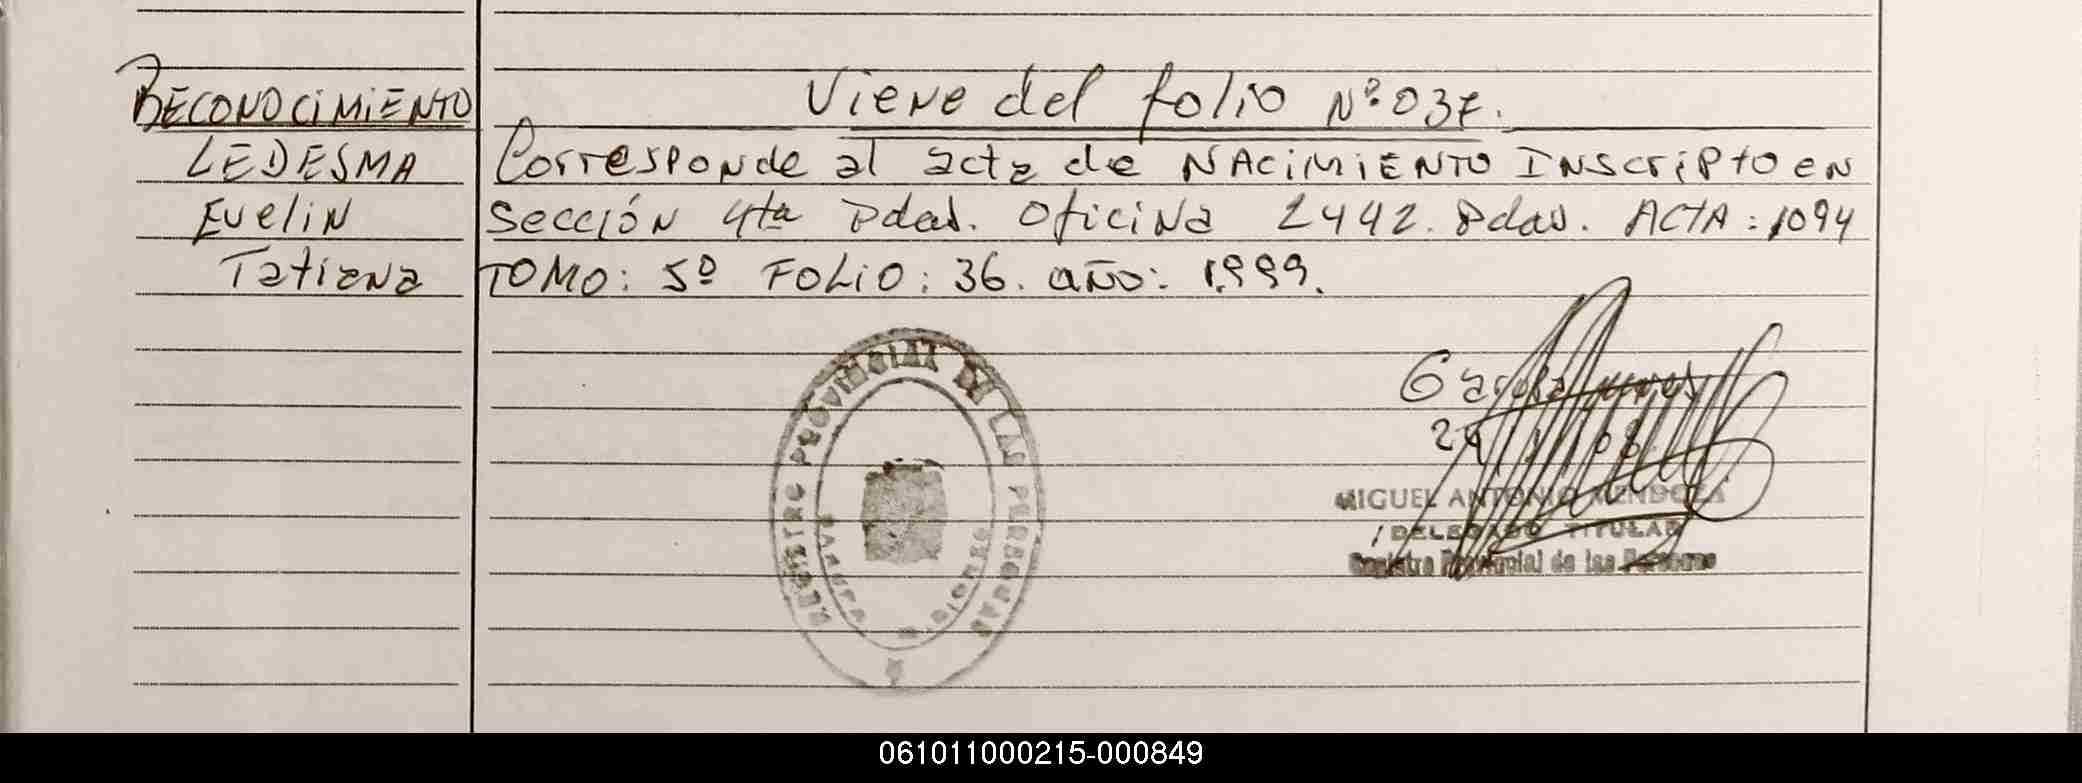 Viene del folio Nº 037.
RECONOCIMIENTO
LEDESMA
Evelin
Tatiana
Corresponde al acta de NACIMIENTO INSCRIPTO EN
Sección 4ta Pdas. Oficina 2442. Pdas. ACTA: 1094
TOMO: 5º FOLIO: 36. año: 1999.
REGISTRO PROVINCIAL DE LAS PERSONAS
MIGUEL ANTONIO MENDOZA
DELEGADO TITULAR
Registro Provincial de las Personas
061011000215-000849